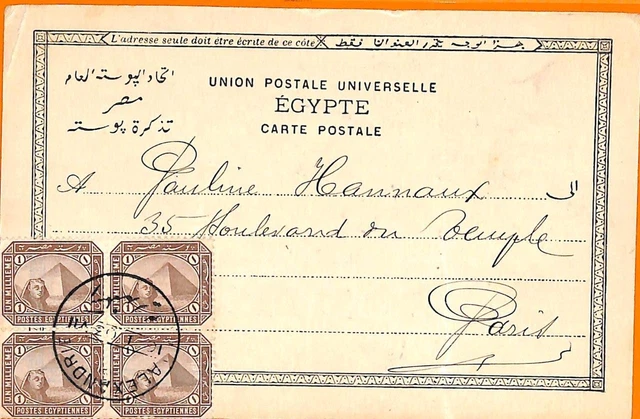 L'adresse seule doit être écrite de ce côté
هذا الوجه يكتب العنوان فقط
اتحاد البوسته العام
مصر
تذكرة بوسته
UNION POSTALE UNIVERSELLE
ÉGYPTE
CARTE POSTALE
A Pauline Hannaux الى
35 Boulevard du Temple
Paris
1 1
UN MILLIEME
POSTES EGYPTIENNES
1 1
UN MILLIEME
POSTES EGYPTIENNES
1 1
UN MILLIEME
POSTES EGYPTIENNES
1 1
UN MILLIEME
POSTES EGYPTIENNES
ALEXANDRIE